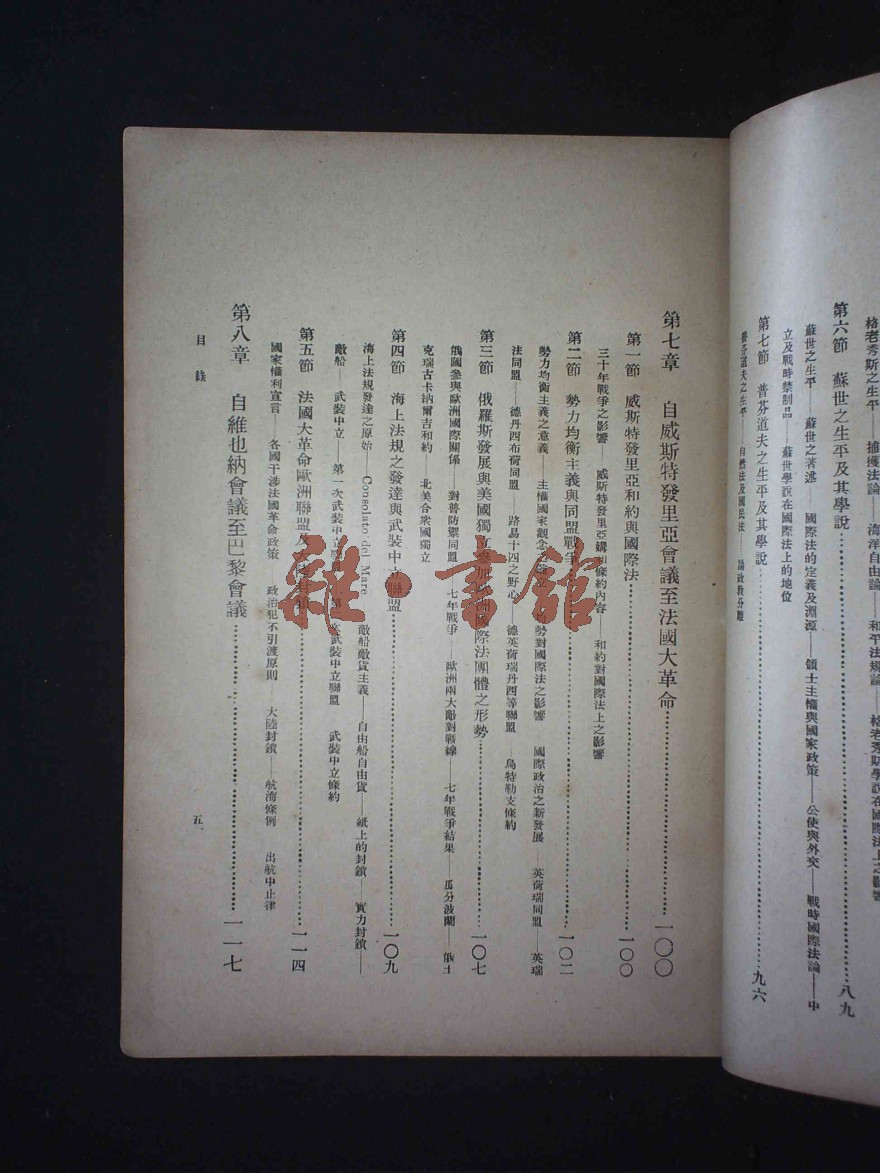 格老秀斯之生平——捕獲法論——海洋自由論——和平法規論——格老秀斯學說在國際法上之影響
第六節 蘇世之生平及其學說……八九
蘇世之生平——蘇世之著述——國際法的定義及淵源——領土主權與國家政策——公使與外交——戰時國際法論——中
立及戰時禁制品——蘇世學說在國際法上的地位
第七節 普芬道夫之生平及其學說……九六
普芬道夫之生平——自然法及國民法——論政教分離
第七章 自威斯特發里亞會議至法國大革命……一〇〇
第一節 威斯特發里亞和約與國際法……一〇〇
三十年戰爭之影響 威斯特發里亞媾和條約內容 和約對國際法上之影響
第二節 勢力均衡主義與同盟戰爭……一〇二
勢力均衡主義之意義——主權國家觀念 勢對國際法之影響 國際政治之新發展——英荷瑞同盟——英瑞
法同盟——德丹西布荷同盟 路易十四之野心 德英荷瑞丹西等聯盟——烏特勒支條約
第三節 俄羅斯發展與美國獨立參加歐洲國際法團體之形勢……一〇七
俄國參與歐洲國際關係——對普防禦同盟 七年戰爭——歐洲兩大敵對戰線——七年戰爭結果——瓜分波蘭——俄土
克瑞古卡納爾吉和約——北美合衆國獨立
第四節 海上法規之發達與武裝中立聯盟……一〇九
海上法規發達之原始——Consolato del Mare 敵船敵貨主義——自由船自由貨——紙上的封鎖——實力封鎖——
敵船——武裝中立——第一次武裝中立 第二次武裝中立聯盟 武裝中立條約
第五節 法國大革命歐洲聯盟及大陸封鎖……一一四
國家權利宣言——各國干涉法國革命政策 政治犯不引渡原則 大陸封鎖——航海條例 出航中止律
第八章 自維也納會議至巴黎會議……一一七
目錄
五
雜·書館